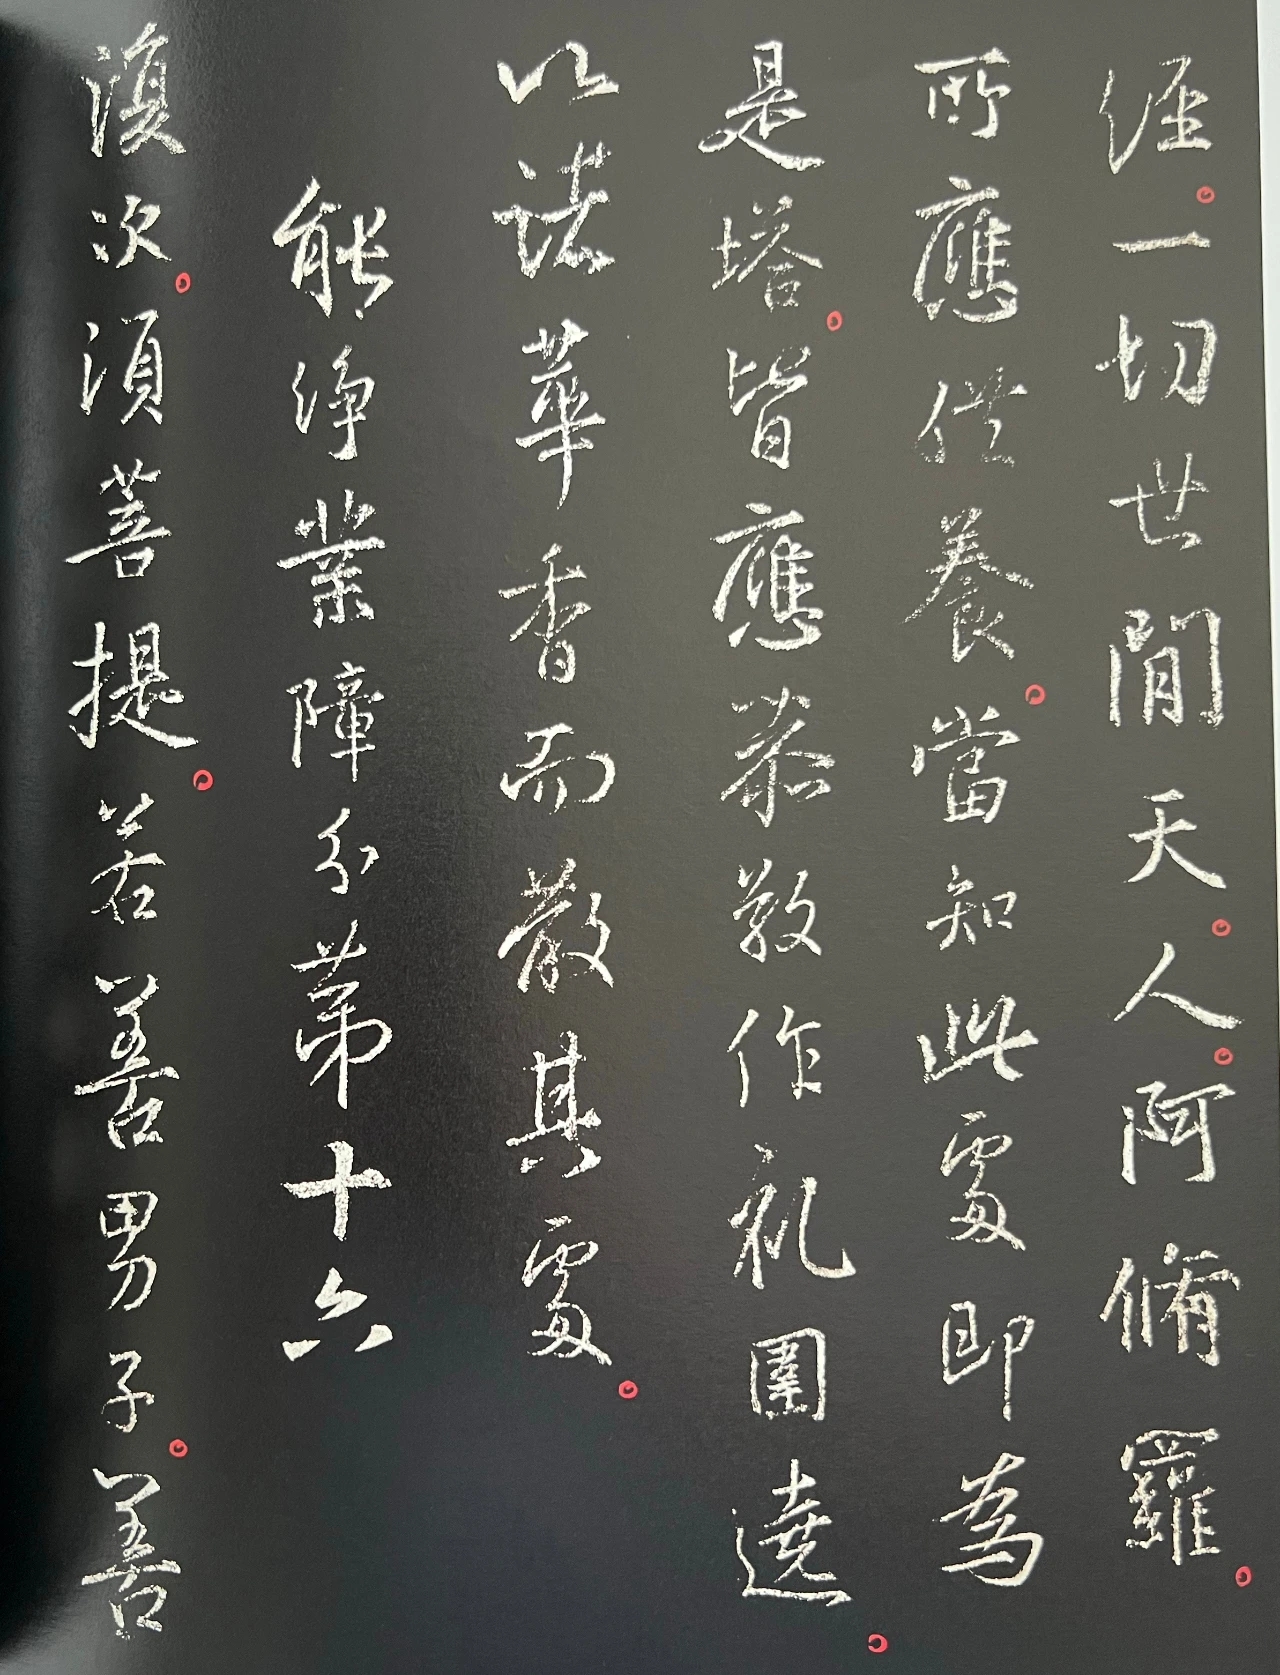 經。一切世間天。人。阿脩羅。
所應供養。當知此處即為
是塔。皆應恭敬作礼圍遶。
以諸華香而散其處。
能淨業障分第十六
復次。須菩提。若善男子。善